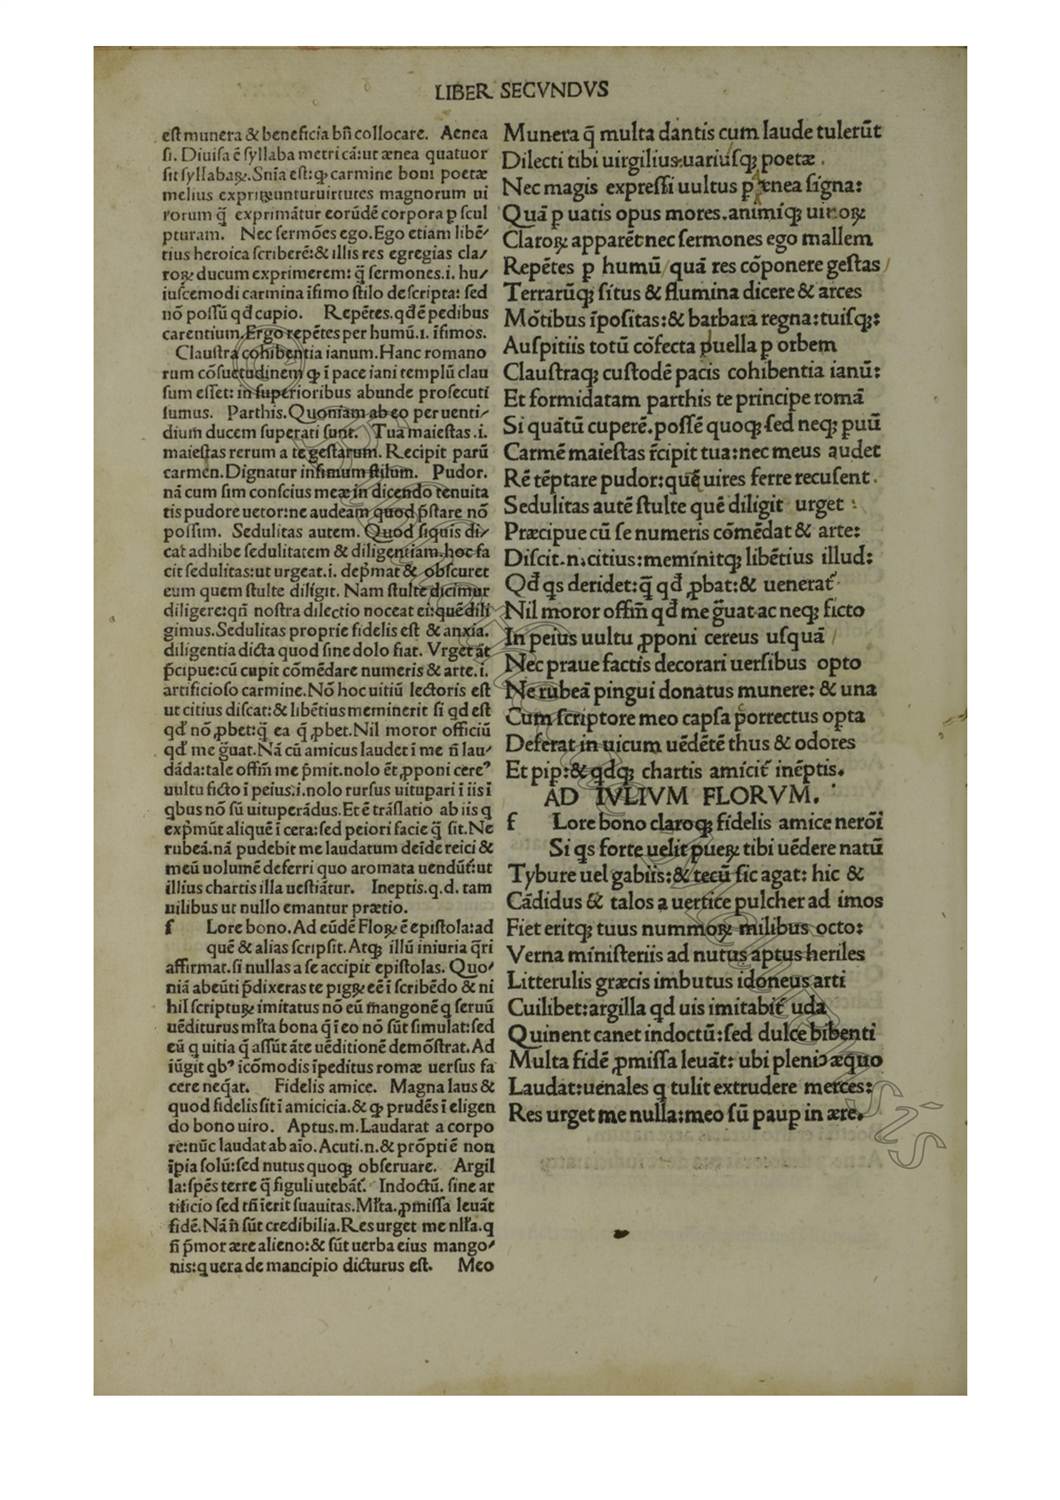 LIBER SECVNDVS
est munera & beneficia bñ collocare. Aenea
ſi. Diuiſa ē ſyllaba metri cā:ut ænea quatuor
ſit ſyllabaꝝ. Snīa eſt:ꝙ carmine boni poetæ
melius exprimuntur uirtutes magnorum ui
rorum q̄ exprimātur eorūdē corpora p ſcul
pturam. Nec ſermões ego. Ego etiam libē⸗
tius heroica ſcriberē:& illis res egregias cla⸗
roꝝ ducum exprimerem: q̄ ſermones.i. hu⸗
iuſcemodi carmina īfimo ſtilo deſcripta: ſed
nõ poſſū qđ cupio. Repētes.qđē pedibus
carentium. Ergo repētes per humū.ı. īfimos.
Clauſtra cohibentia ianum. Hanc romano
rum cõſuetudinem ꝙ ī pace iani templū clau
ſum eſſet: in ſuperioribus abunde proſecuti
ſumus. Parthis. Quoniam ab eo per uenti⸗
dium ducem ſuperati ſunt. Tua maieſtas .i.
maieſtas rerum a te geſtarum. Recipit parū
carmen. Dignatur infimum ſtilum. Pudor.
nā cum ſim conſcius meæ in dicendo tenuita
tis pudore uetor:ne audeam quod p̄ſtare nõ
poſſim. Sedulitas autem. Quod ſiquis di⸗
cat adhibe ſedulitatem & diligentiam.hoc fa
cit ſedulitas:ut urgeat.i. dep̄mat & obſcuret
eum quem ſtulte diligit. Nam ſtulte dicimur
diligere:qñ noſtra dilectio noceat ei:quē dili
gimus. Sedulitas proprie fidelis eſt & anxia.
diligentia dicta quod ſine dolo fiat. Vrget āt
p̄cipue:cū cupit cõmēdare numeris & arte.i.
artificioſo carmine. Nõ hoc uitiū lectoris eſt
ut citius diſcat:& libētius meminerit ſi qđ eſt
qđ nõ ꝓbet:q̄ ea q̄ ꝓbet. Nil moror officiū
qđ me g̃uat. Nā cū amicus laudet ī me ñ lau⸗
dāda:tale offīm me p̄mit. nolo ēt ꝓponi cereꝰ
uultu ficto ī peius.i.nolo rurſus uitupari ī iis ī
qbus nõ ſū uituperādus. Et ē trāſlatio ab iis q
exp̄mūt aliquē ī cera:ſed peiori facie q̄ ſit. Ne
rubeā.nā pudebit me laudatum deīde reici &
meū uolumē deferri quo aromata uendūt̃:ut
illius chartis illa ueſtiātur. Ineptis.q.d. tam
uilibus ut nullo emantur prætio.
f Lore bono. Ad eūdē Floꝝ ē epiſtola:ad
quē & alias ſcripſit. Atq; illū iniuria q̄ri
affirmat.ſi nullas a ſe accipit epiſtolas. Quo⸗
niā abeūti p̄dixeras te pigꝝ eē ī ſcribēdo & ni
hil ſcripturꝝ imitatus nõ eū m̄angonē q ſeruū
uēditurus mr̄ta bona q̄ ī eo nõ ſūt ſimulat:ſed
eū q uitia q̄ aſſūt āte uēditionē demõſtrat. Ad
iūgit qbꝰ īcõmodis īpeditus romæ uerſus fa
cere neq̄at. Fidelis amice. Magna laus &
quod fidelis ſit ī amicicia.& ꝙ prudēs ī eligen
do bono uiro. Aptus.m. Laudarat a corpo
re:nūc laudat ab aīo. Acuti.n.& prõpti ē non
īpia ſolū:ſed nutus quoq; obſeruare. Argil
la:ſpēs terre q̄ figuli utebāt̃. Indoctū. ſine ar
tificio ſed tñ ierit ſuauitas. Mr̄ta.ꝓmiſſa leuāt
fidē. Nā ñ ſūt credibilia. Res urget me nl̄la.q
ſi p̄mor ære alieno:& ſūt uerba eius mango⸗
nis:q uera de mancipio dicturus eſt. Meo
Munera q̄ multa dantis cum laude tulerūt
Dilecti tibi uirgilius:uariuſq; poetæ .
Nec magis expreſſi uultus p ænea ſigna:
Quā p uatis opus mores.animíq; uiroꝝ
Claroꝝ apparēt:nec ſermones ego mallem
Repētes p humū quā res cõponere geſtas
Terrarūq; ſitus & flumina dicere & arces
Mõtibus īpoſitas:& barbara regna:tuiſq;:
Auſpitiis totū cõfecta puella p orbem
Clauſtraq; cuſtodē pacis cohibentia ianū:
Et formidatam parthis te principe romā
Si quātū cuperē.poſſē quoq;:ſed neq; puū
Carmē maieſtas r̄cipit tua:nec meus audet
Rē tēptare pudor:quē uires ferre recuſent.
Sedulitas autē ſtulte quē diligit urget :
Præcipue cū ſe numeris cõmēdat & arte:
Diſcit.n.citius:meminitq; libētius illud:
Qđ qs deridet:q̄ qđ ꝓbat:& uenerat̃
Nil moror offīm qđ me g̃uat ac neq; ficto
In peius uultu ꝓponi cereus uſquā
Nec praue factis decorari uerſibus opto
Ne rubeā pingui donatus munere: & una
Cum ſcriptore meo capſa porrectus opta
Deferat in uicum uēdētē thus & odores
Et pip:& qdq; chartis amicit̃ inēptis.
AD IVLIVM FLORVM.
f Lore bono claroq; fidelis amice nerõi
Si qs forte uelit pueꝝ tibi uēdere natū
Tybure uel gabiis:& tecū ſic agat: hic &
Cādidus & talos a uertice pulcher ad imos
Fiet eritq; tuus nummoꝝ milibus octo:
Verna miniſteriis ad nutus aptus heriles
Litterulis græcis imbutus idoneus arti
Cuilibet:argilla qđ uis imitabit̃ uda
Quinent canet indoctū:ſed dulce bibenti
Multa fidē ꝓmiſſa leuāt: ubi pleniꝰ æquo
Laudat:uenales q tulit extrudere merces:
Res urget me nulla:meo ſū paup in ære.